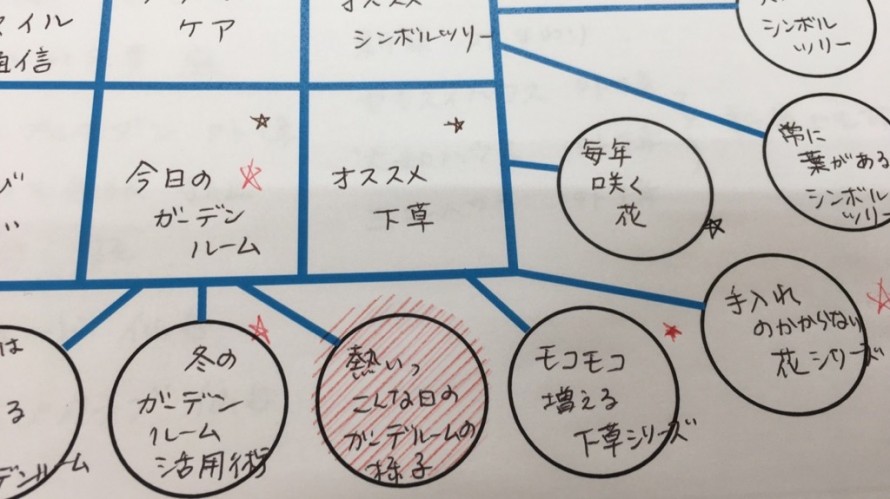 ケア
オススメ
シンボルツリー
シンボル
ツリー
今日の
ガーデン
ルーム
オススメ
下草
毎年
咲く
花
常に
葉がある
シンボル
ツリー
冬の
ガーデン
ルーム
活用術
熱いっ
こんな日の
ガーデルームの
様子
モコモコ
増える
下草シリーズ
手入れ
のかからない
花シリーズ